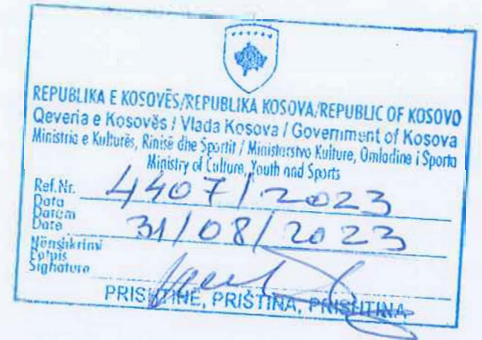 REPUBLIKA E KOSOVËS/REPUBLIKA KOSOVA/REPUBLIC OF KOSOVO
Qeveria e Kosovës / Vlada Kosova / Government of Kosova
Ministria e Kulturës, Rinisë dhe Sportit / Ministarstvo Kulture, Omladine i Sporta
Ministry of Culture, Youth and Sports
Ref.Nr. 4407/2023
Data
Datum
Date 31/08/2023
Nënshkrimi
Potpis
Sighature
PRISHTINË, PRIŠTINA, PRISHTINA